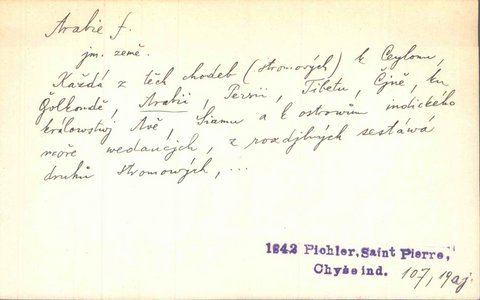 Arabie f.
jm. země.
Každá z těch chodeb (stromových) k Ceylonu,
Golkondě, Arabii, Persii, Tibetu, Čjně, ku
králowstwj Awě, Siamu a k ostrowům indického
moře wedaucjch, z rozdjlných sestáwá
druhů stromowých, ...
1842 Pichler, Saint Pierre,
Chyše ind. 107, 19 aj.